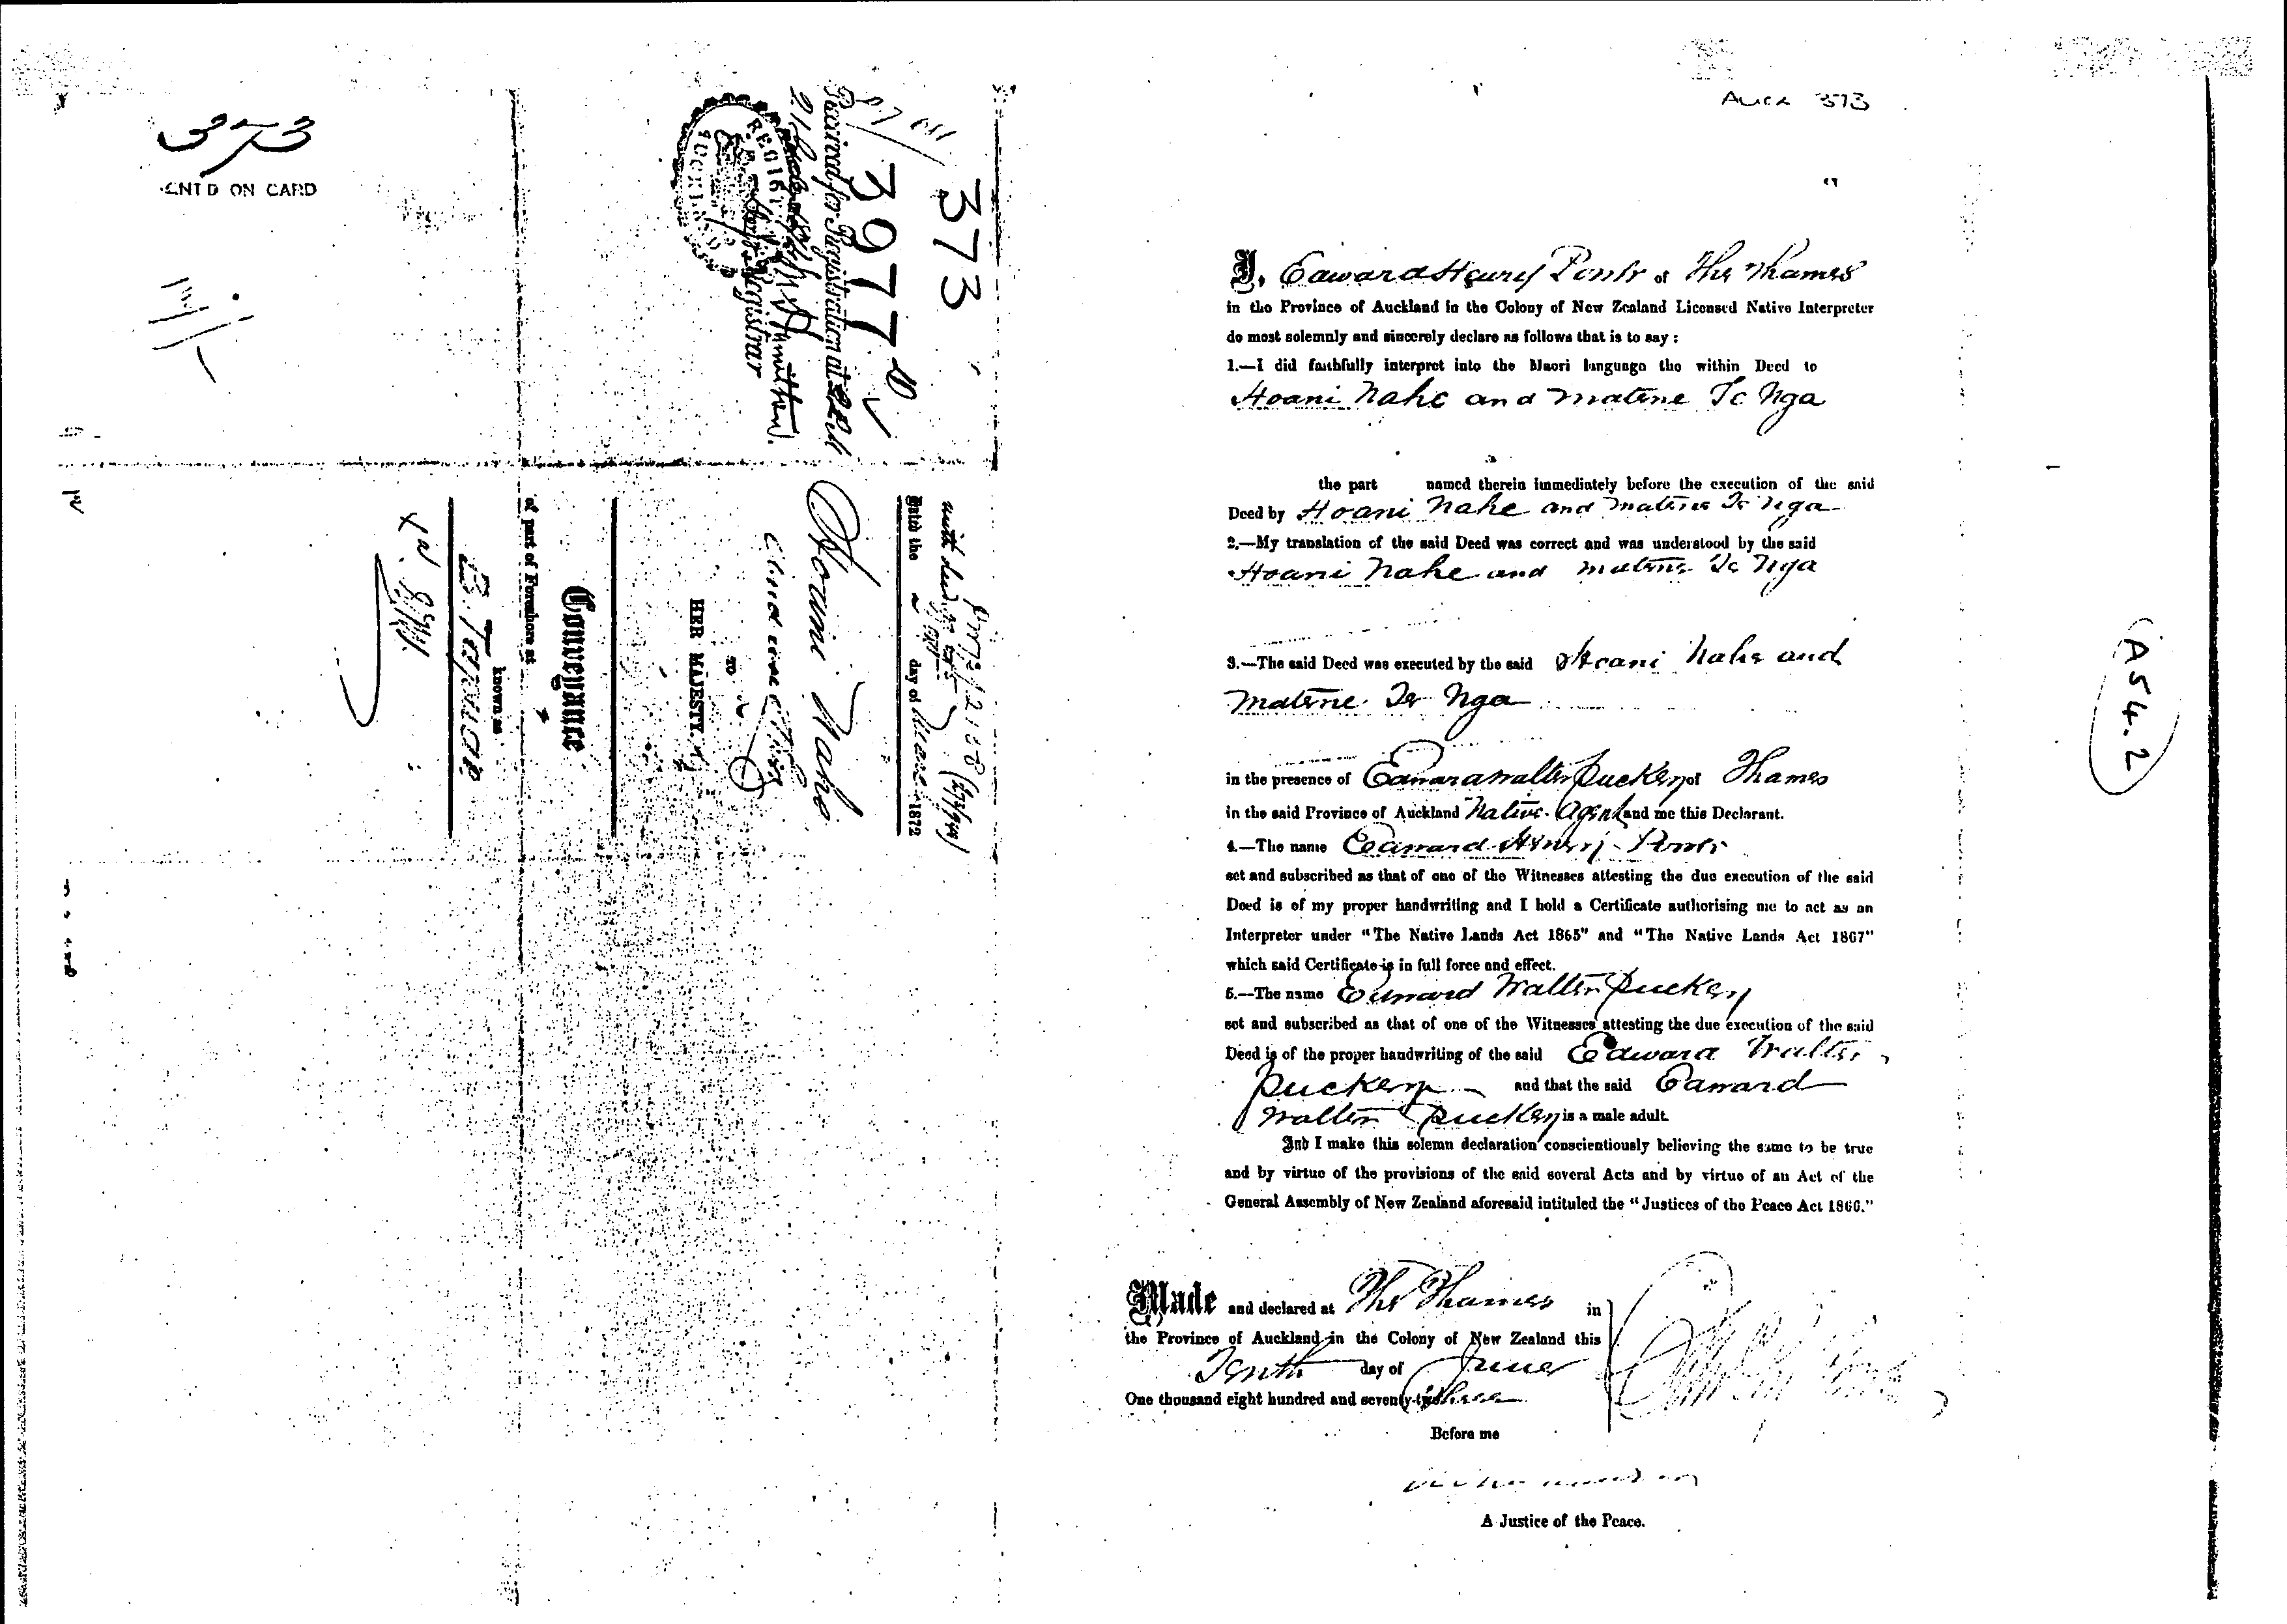 373
ENTD ON CARD
373
3977
Received for Registration at
Registrar
Dated the day of 1872
Hoani Nahe
and one other
TO
HER MAJESTY.
Conveyance
of part of Foreshore at
known as
Auck 373
I, Edward Henry of The Thames
in the Province of Auckland in the Colony of New Zealand Licensed Native Interpreter
do most solemnly and sincerely declare as follows that is to say :
1.—I did faithfully interpret into the Maori language the within Deed to
Hoani Nahe and Matene Te Nga
the part named therein immediately before the execution of the said
Deed by Hoani Nahe and Matene Te Nga
2.—My translation of the said Deed was correct and was understood by the said
Hoani Nahe and Matene Te Nga
3.—The said Deed was executed by the said Hoani Nahe and
Matene Te Nga
in the presence of Edward Walter Puckey of Thames
in the said Province of Auckland Native Agent and me this Declarant.
4.—The name Edward Henry
set and subscribed as that of one of the Witnesses attesting the due execution of the said
Deed is of my proper handwriting and I hold a Certificate authorising me to act as an
Interpreter under "The Native Lands Act 1865" and "The Native Lands Act 1867"
which said Certificate is in full force and effect.
5.—The name Edward Walter Puckey
set and subscribed as that of one of the Witnesses attesting the due execution of the said
Deed is of the proper handwriting of the said Edward Walter
Puckey and that the said Edward
Walter Puckey is a male adult.
And I make this solemn declaration conscientiously believing the same to be true
and by virtue of the provisions of the said several Acts and by virtue of an Act of the
General Assembly of New Zealand aforesaid intituled the "Justices of the Peace Act 1866."
Made and declared at The Thames in
the Province of Auckland in the Colony of New Zealand this
Tenth day of June
One thousand eight hundred and seventy-three
Before me
A Justice of the Peace.
A54.2